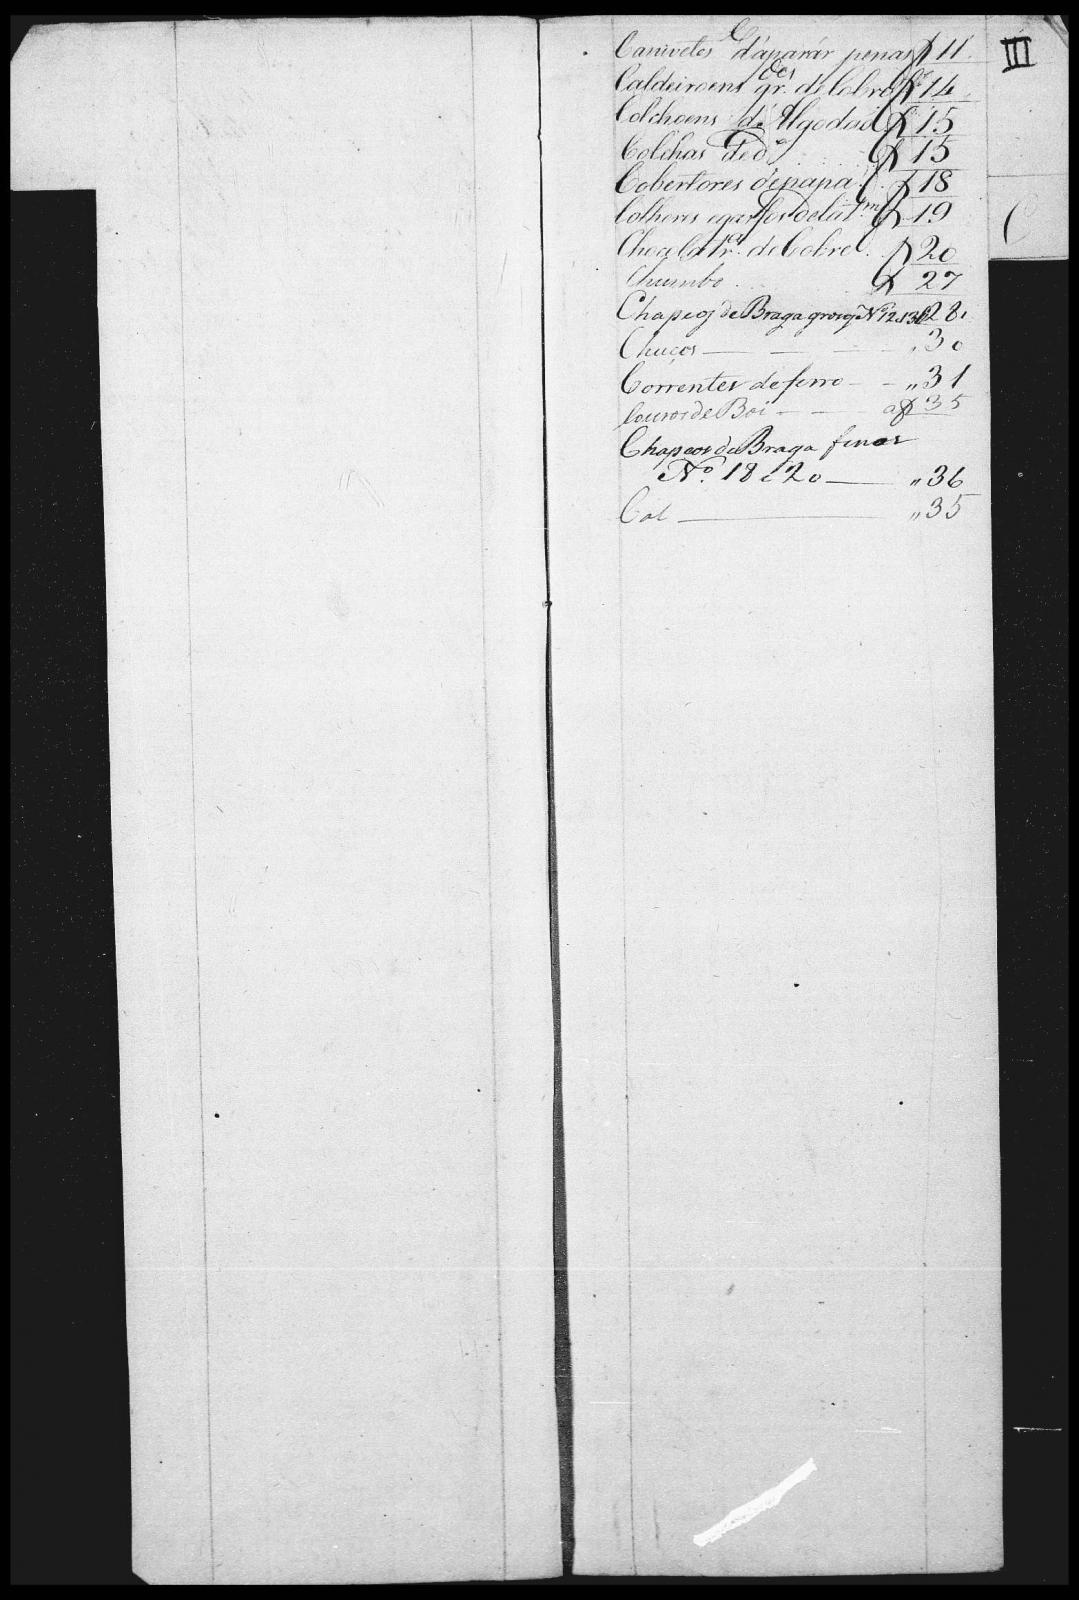 C
III
Canivetes d'aparár penas f 11
Caldeiroens gr.des de Cobre f 14
Colchoens de Algodaõ f 15
Colchas de d.o f 15
Cobertores de papa f 18
Colheres e garfos de lat.m f 19
Chocolatr.a de Cobre f 20
Chumbo f 27
Chapeos de Braga grosos No 12 a 13 f 28
Chuços — — — " 30
Correntes de ferro — — " 31
Couros de Boi — — af 35
Chapeos de Braga finos
No. 18 e 20 — " 36
Cal — " 35
C